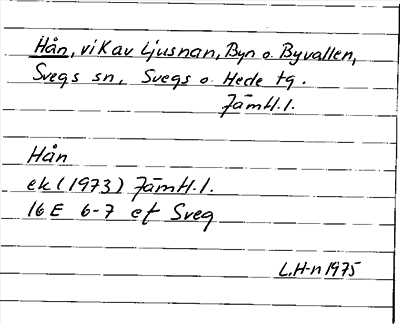 Hån, vik av Ljusnan, Byn o. Byvallen,
Svegs sn, Svegs o. Hede tg.
Jämtl. l.
Hån
ek (1973) Jämtl. l.
16 E 6-7 ef Sveg
L. H-n 1975